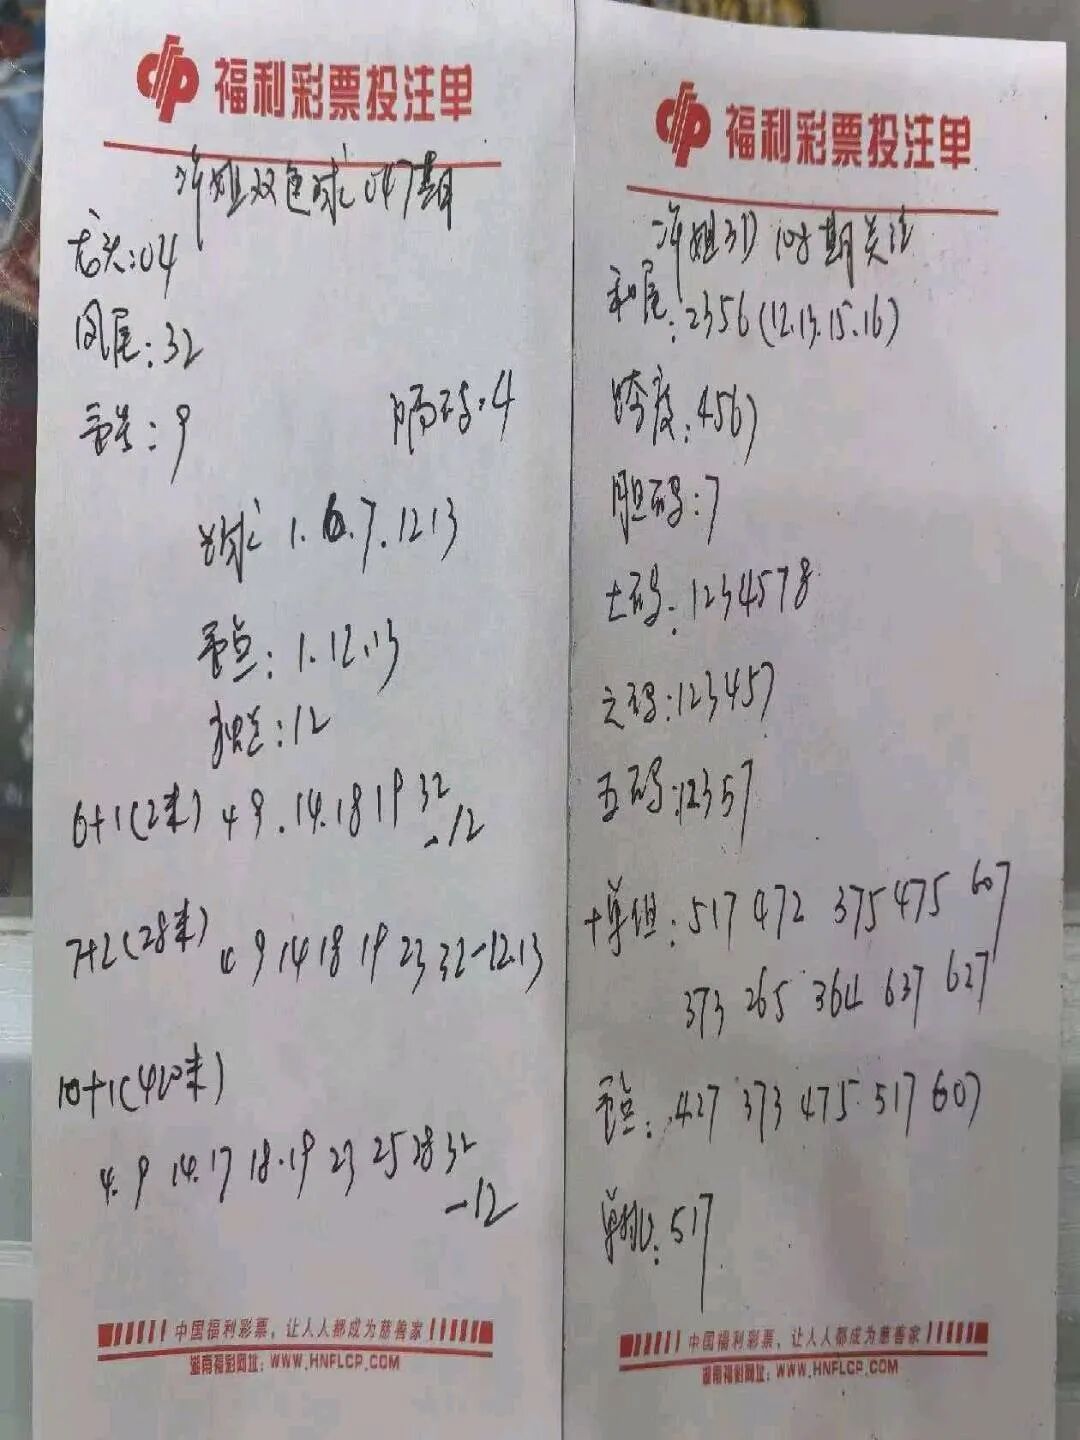 福利彩票投注单
姐双色球047期
龙头:04
凤尾:32
重号:9 隔码:4
球 1.6.7.12 13
重点:1.12.13
独兰:12
6+1(2末) 4 9.14.18 19 32-12
7+2(28末) 4 9 14 18 19 23 32-12.13
10+1(420末)
4.9 14.17 18.19 23 25 28 32-12
中国福利彩票，让人人都成为慈善家
湖南福彩网址：WWW.HNFLCP.COM
福利彩票投注单
姐3D 108期关注
和尾:2356(12.13.15.16)
跨度:4567
胆码:7
七码:1234578
六码:123457
五码:12357
十单组:517 472 375 475 607
373 265 364 637 627
重点:427 373 475 517 607
单挑:517
中国福利彩票，让人人都成为慈善家
湖南福彩网址：WWW.HNFLCP.COM